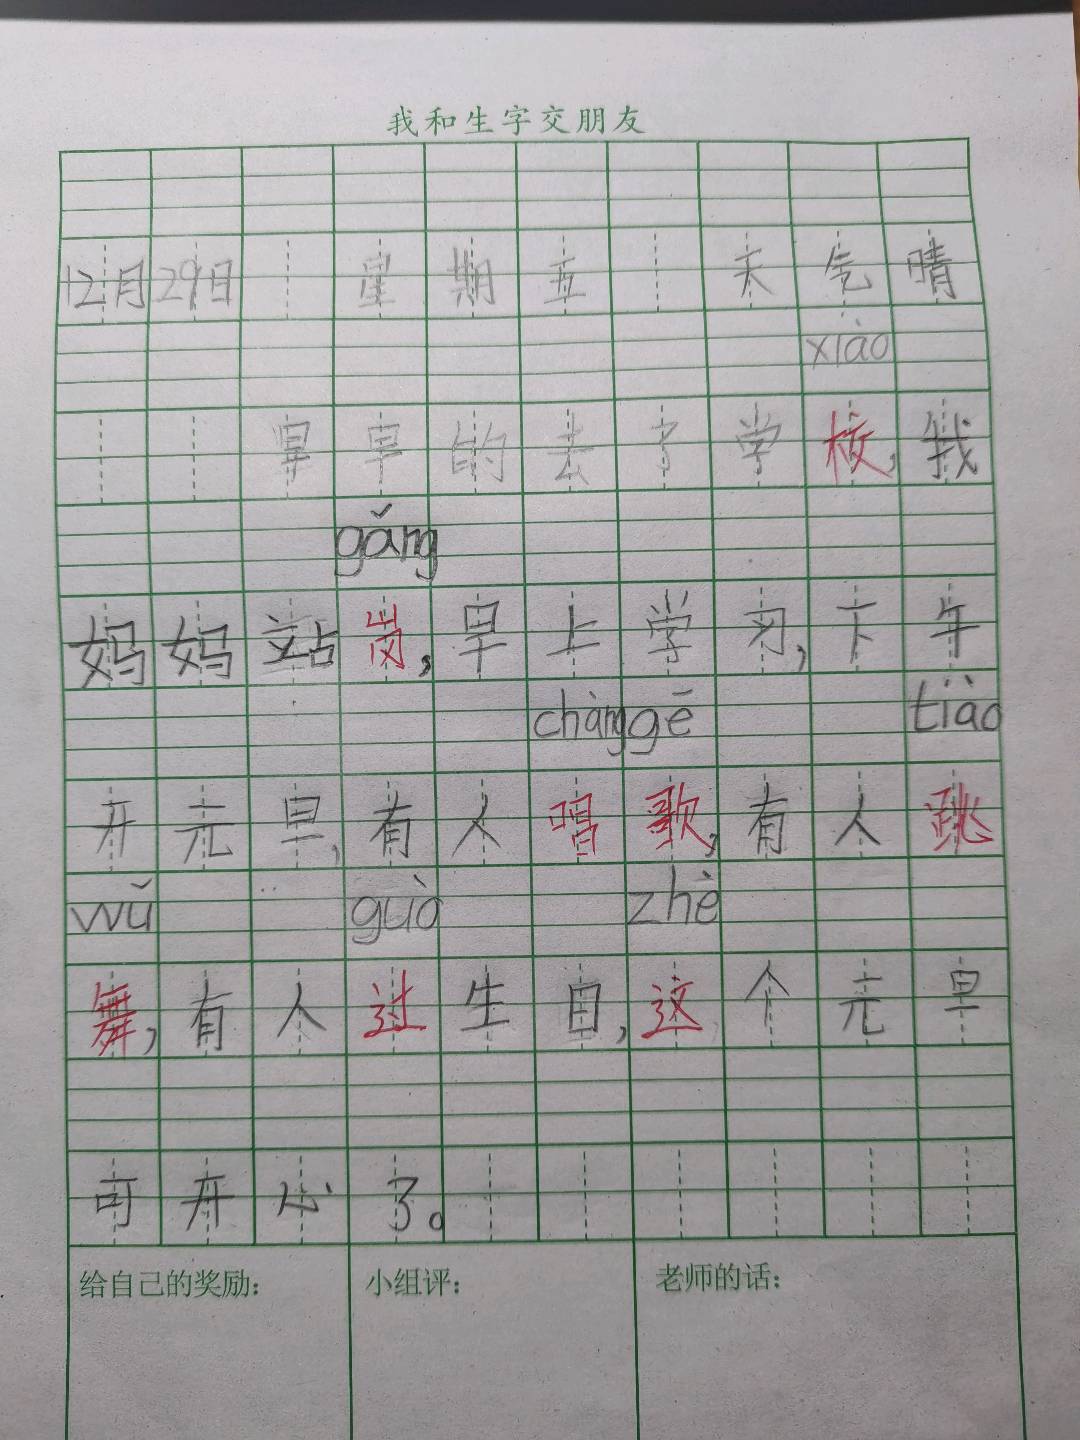 我和生字交朋友
12月29日 星期五 天气晴
xiào
早早的去了学校,我
gǎng
妈妈站岗,早上学习,下午
chànggē tiào
开元旦,有人唱歌,有人跳
wǔ guò zhè
舞,有人过生日,这个元旦
可开心了。
给自己的奖励: 小组评: 老师的话: